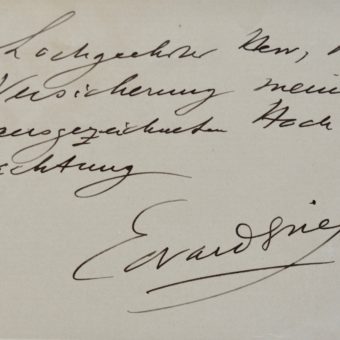 Hochgeehrter Herr,
Versicherung mein
ausgezeichneten Hoch
achtung
Edvard Grie